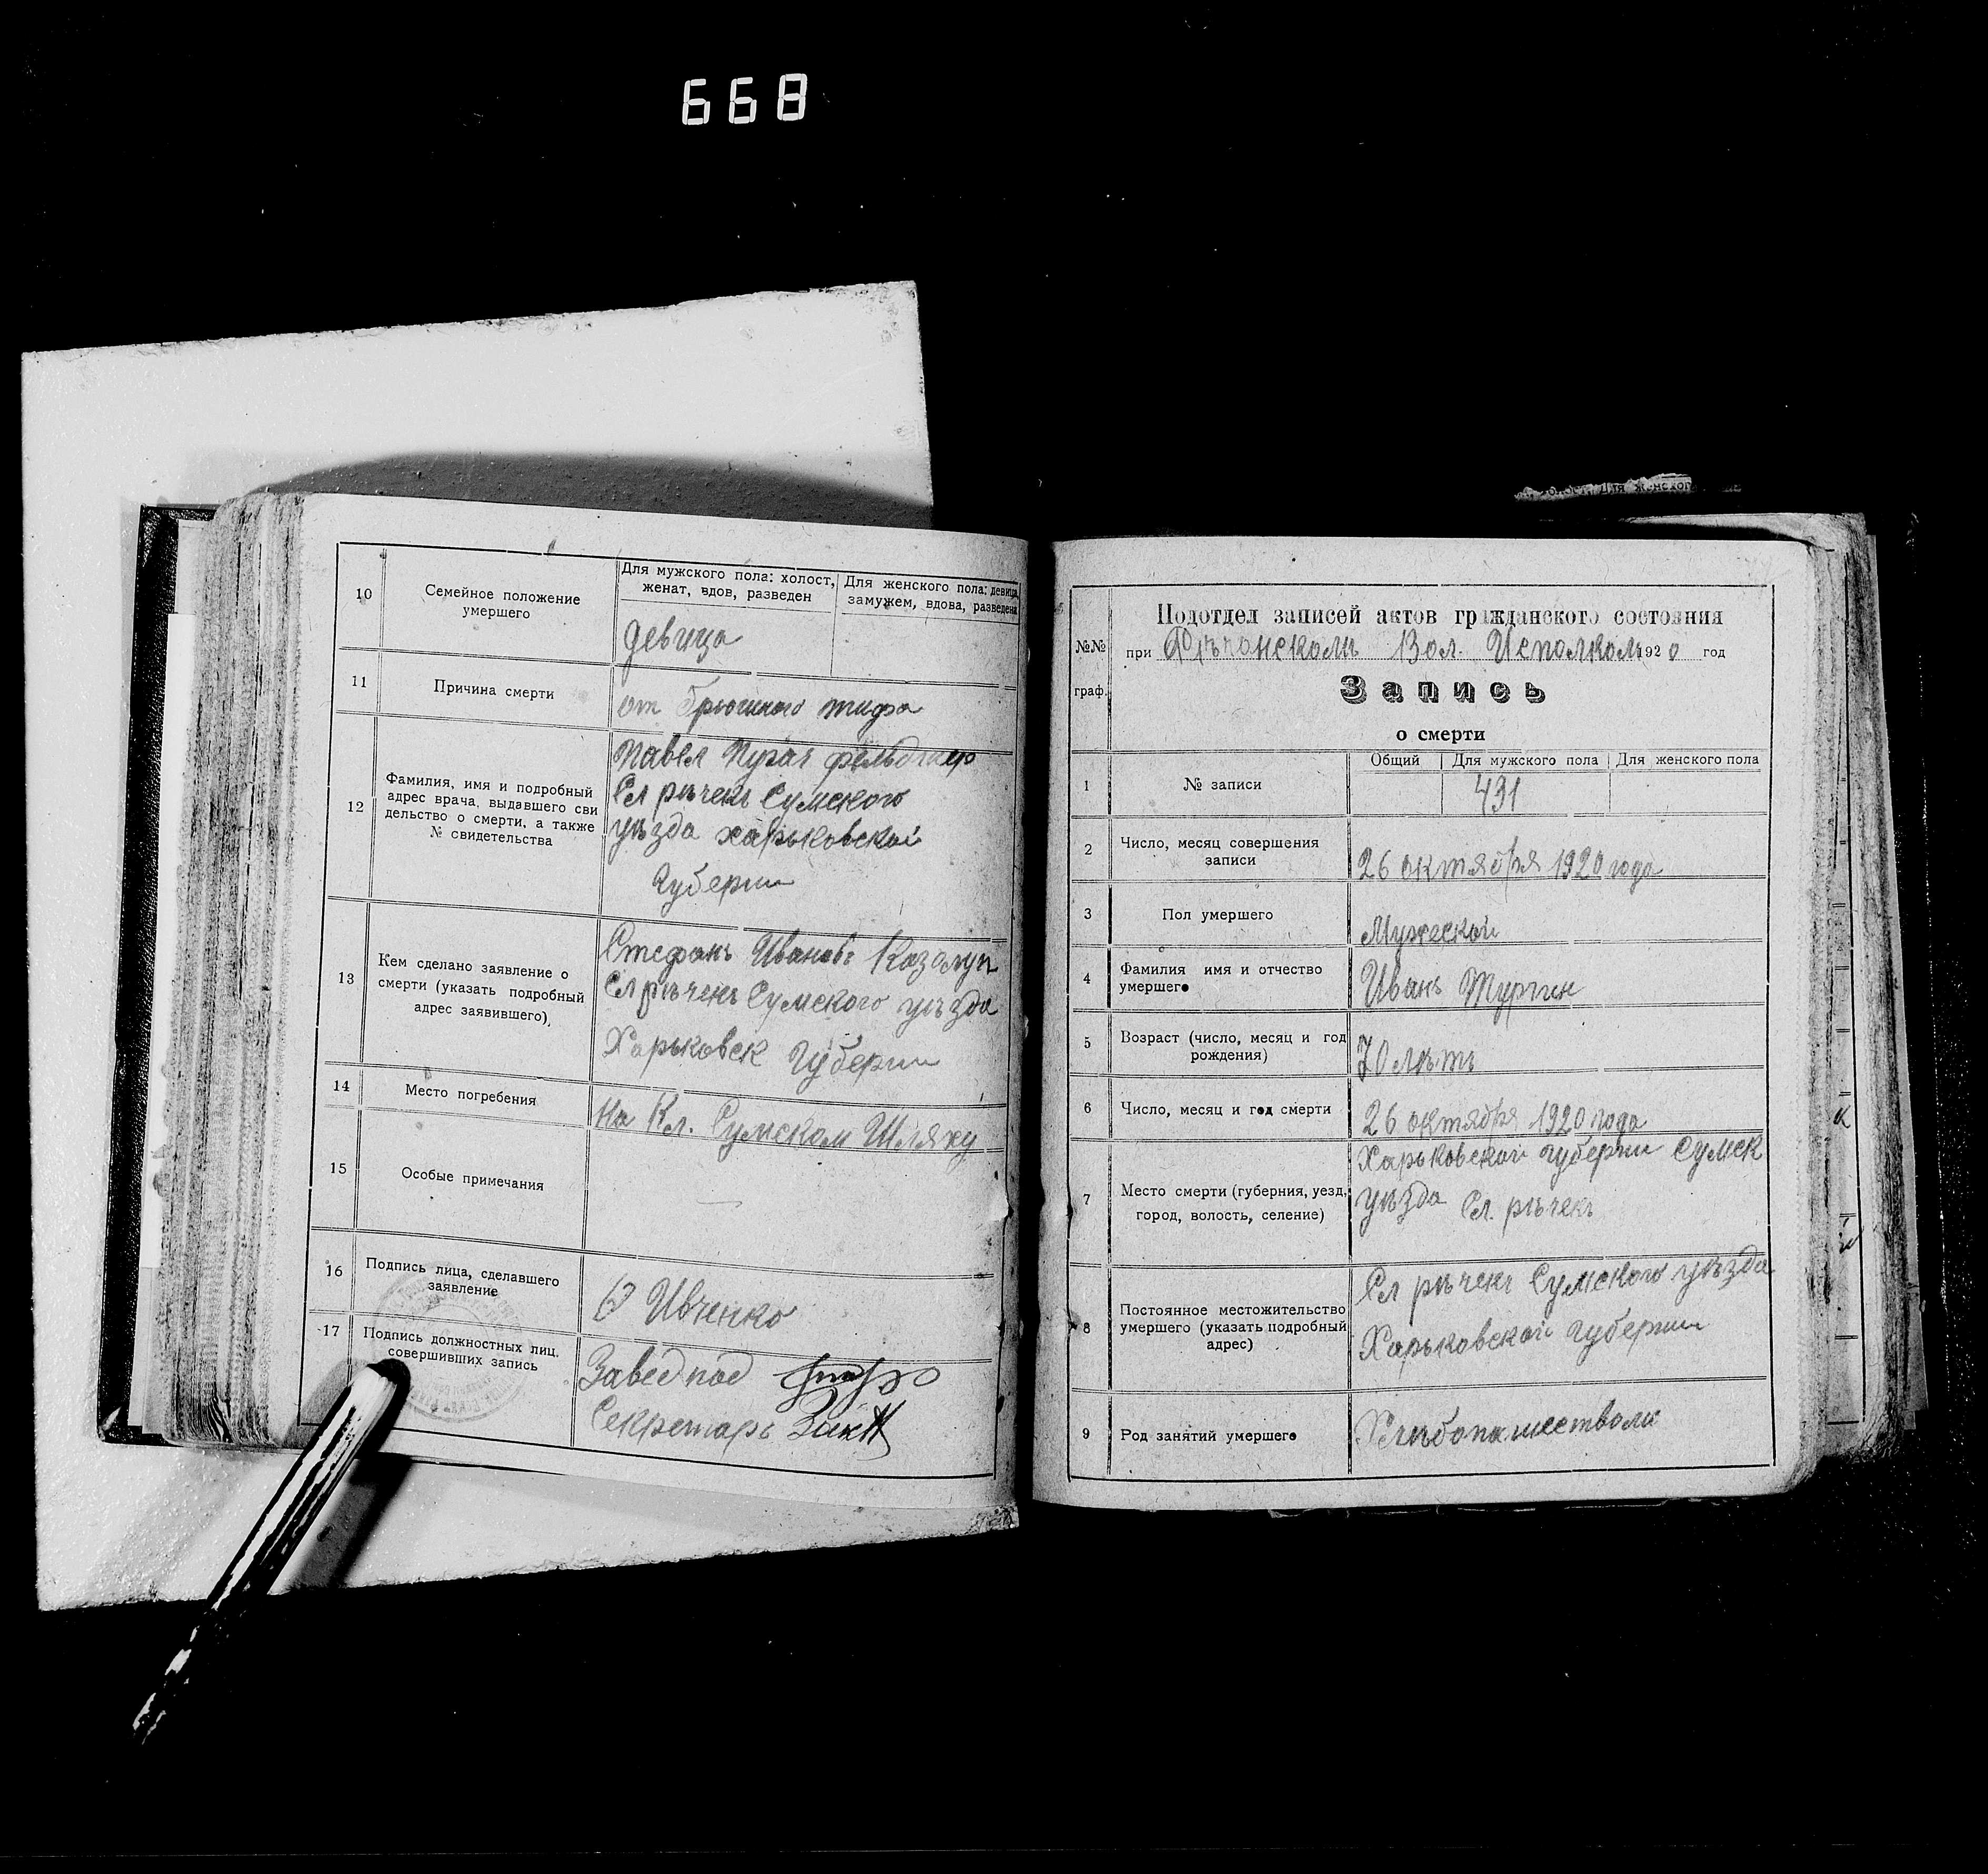 668
10
Семейное положение
умершего
Для мужского пола: холост,
женат, вдов, разведен
Для женского пола: девица,
замужем, вдова, разведена
девица
11
Причина смерти
от брюшного тифа
12
Фамилия, имя и подробный
адрес врача, выдавшего сви
дельство о смерти, а также
№ свидетельства
Павел Пугач фельдшер
Сл рѣчекъ Сумского
уѣзда харьковской
Губернии
13
Кем сделано заявление о
смерти (указать подробный
адрес заявившего)
Стефанъ Иванов Козолуп
Сл рѣчекъ Сумского уѣзда
Харьковск Губернии
14
Место погребения
на Кл. Сумском Шляху
15
Особые примечания
16
Подпись лица, сделавшего
заявление
Ивченко
17
Подпись должностных лиц.
совершивших запись
Завед под
Секретарь
№№
граф.
Подотдел записей актов гражданского состояния
при Вол. Исполкомъ 1920 год
Запись
о смерти
1
№ записи
Общий
Для мужского пола
Для женского пола
431
2
Число, месяц совершения
записи
26 октября 1920 года
3
Пол умершего
Мужеской
4
Фамилия имя и отчество
умершего
Иванъ Турчин
5
Возраст (число, месяц и год
рождения)
70 лѣтъ
6
Число, месяц и год смерти
26 октября 1920 года
7
Место смерти (губерния, уезд,
город, волость, селение)
Харьковской губернии Сумск
уѣзда Сл. рѣчекъ
8
Постоянное местожительство
умершего (указать подробный
адрес)
Сл рѣчекъ Сумского уѣзда
Харьковской губернии
9
Род занятий умершего
Хлѣбопашеством